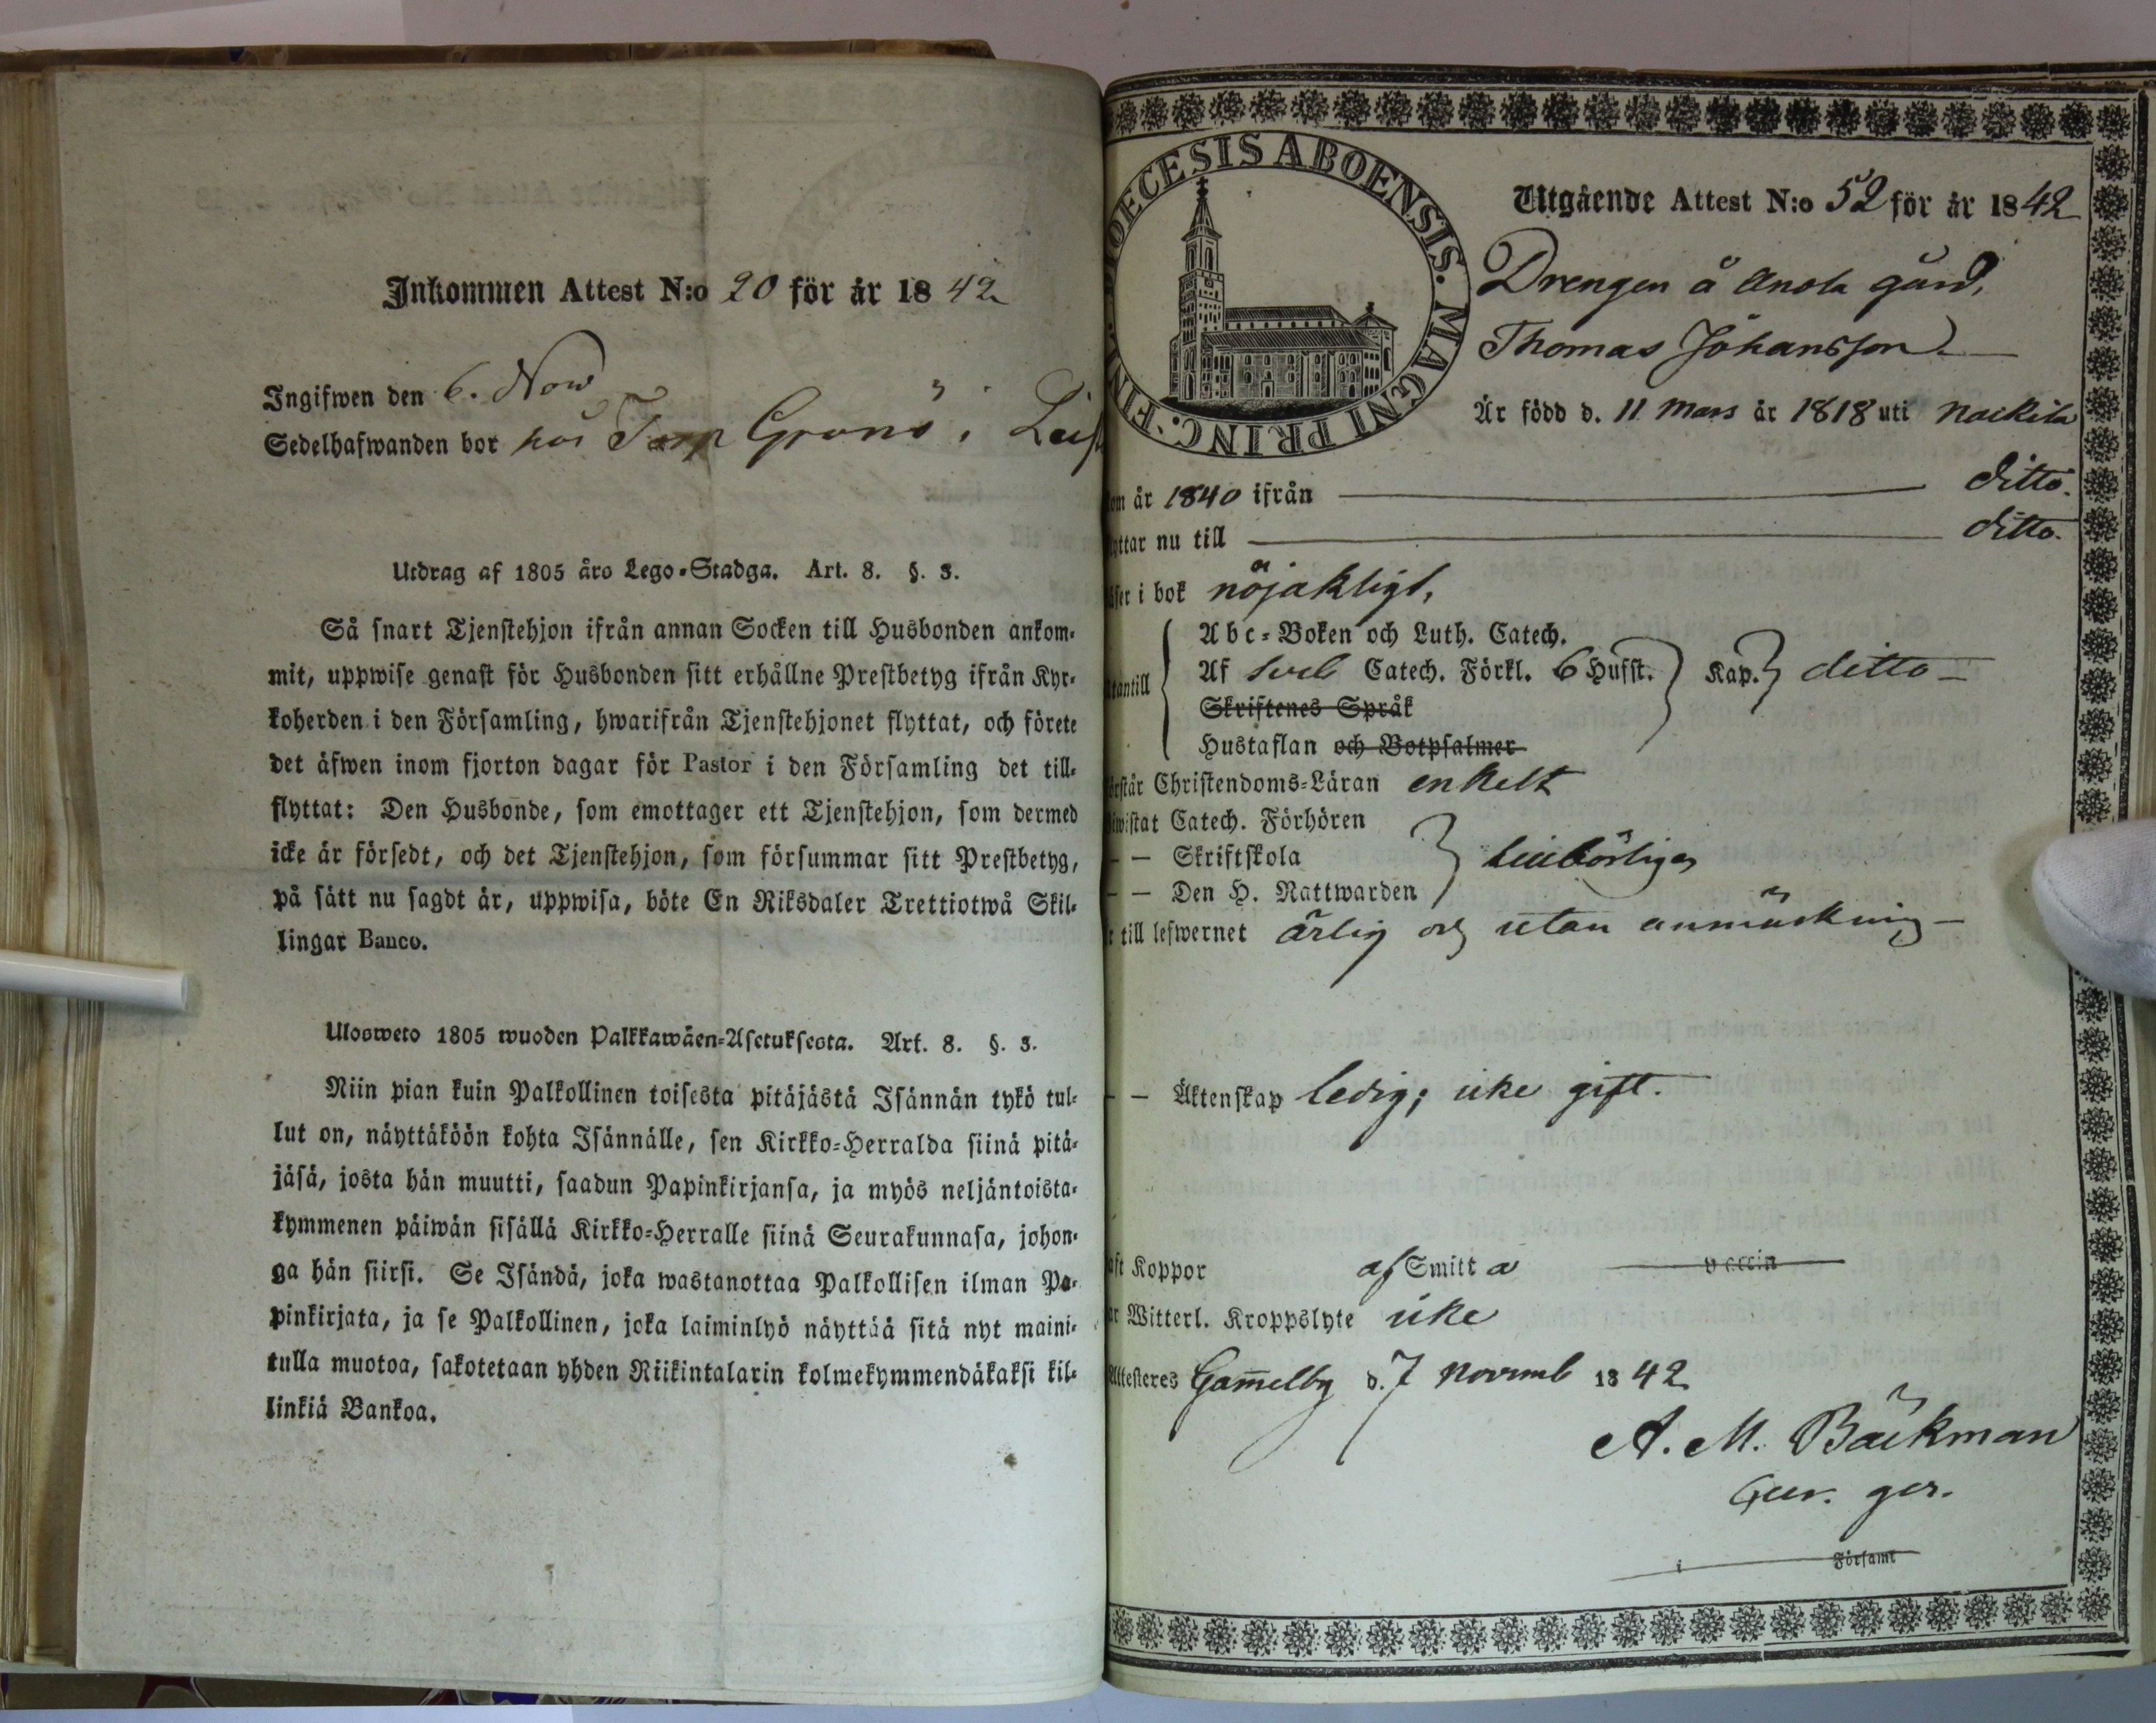 Inkommen Attest N:o 20 för år 1842
Ingifwen den 6. Nov
Sedelhafwanden bor hos Torp Grönö i
Utdrag af 1805 års Lego-Stadga. Art. 8. §. 3.
Så snart Tjenstehjon ifrån annan Socken till Husbonden ankom-
mit, uppwise genast för Husbonden sitt erhållne Prestbetyg ifrån Kyr-
koherden i den Församling, hwarifrån Tjenstehjonet flyttat, och förete
det äfwen inom fjorton dagar för Pastor i den Församling det till-
flyttat: Den Husbonde, som emottager ett Tjenstehjon, som dermed
icke är försedt, och det Tjenstehjon, som försummar sitt Prestbetyg,
på sätt nu sagdt är, uppwisa, böte En Riksdaler Trettiotwå Skil-
lingar Banco.
Ulosweto 1805 wuoden Palkkawäen-Asetuksesta. Art. 8. §. 3.
Niin pian kuin Palkollinen toisesta pitäjästä Isännän tykö tul-
lut on, näyttäköön kohta Isännälle, sen Kirkko-Herralda siinä pitä-
jäsä, josta hän muutti, saadun Papinkirjansa, ja myös neljäntoista-
kymmenen päiwän sisällä Kirkko-Herralle siinä Seurakunnasa, johon-
ga hän siirsi. Se Isändä, joka wastanottaa Palkollisen ilman Pa-
pinkirjata, ja se Palkollinen, joka laiminlyö näyttää sitä nyt maini-
tulla muotoa, sakotetaan yhden Riikintalarin kolmekymmendäkaksi kil-
linkiä Bankoa.
DIOECESIS ABOENSIS. MAGNI PRINC. FINL.
Utgående Attest N:o 52 för år 1842
Drengen å Anola gård,
Thomas Johansson
Är född d. 11 Mars år 1818 uti Nackila
kom år 1840 ifrån ditto.
flyttar nu till ditto.
läser i bok nöjaktligt,
utantill
Abc-Boken och Luth. Catech.
Af Catech. Förkl. 6 Hufst. Kap. ditto
Skriftenes Språk
Hustaflan och Botpsalmer
förstår Christendoms-Läran enkelt
biwistat Catech. Förhören
— — Skriftskola tillbörligen
— — Den H. Nattwarden
är till lefwernet ärlig och utan anmärkning
— — Äktenskap ledig; icke gift.
haft Koppor af Smitta vaccin
har Witterl. Kroppslyte icke
Attesteres Gamelby d. 7 Novemb 1842
A. M. Bäckman
i Församl